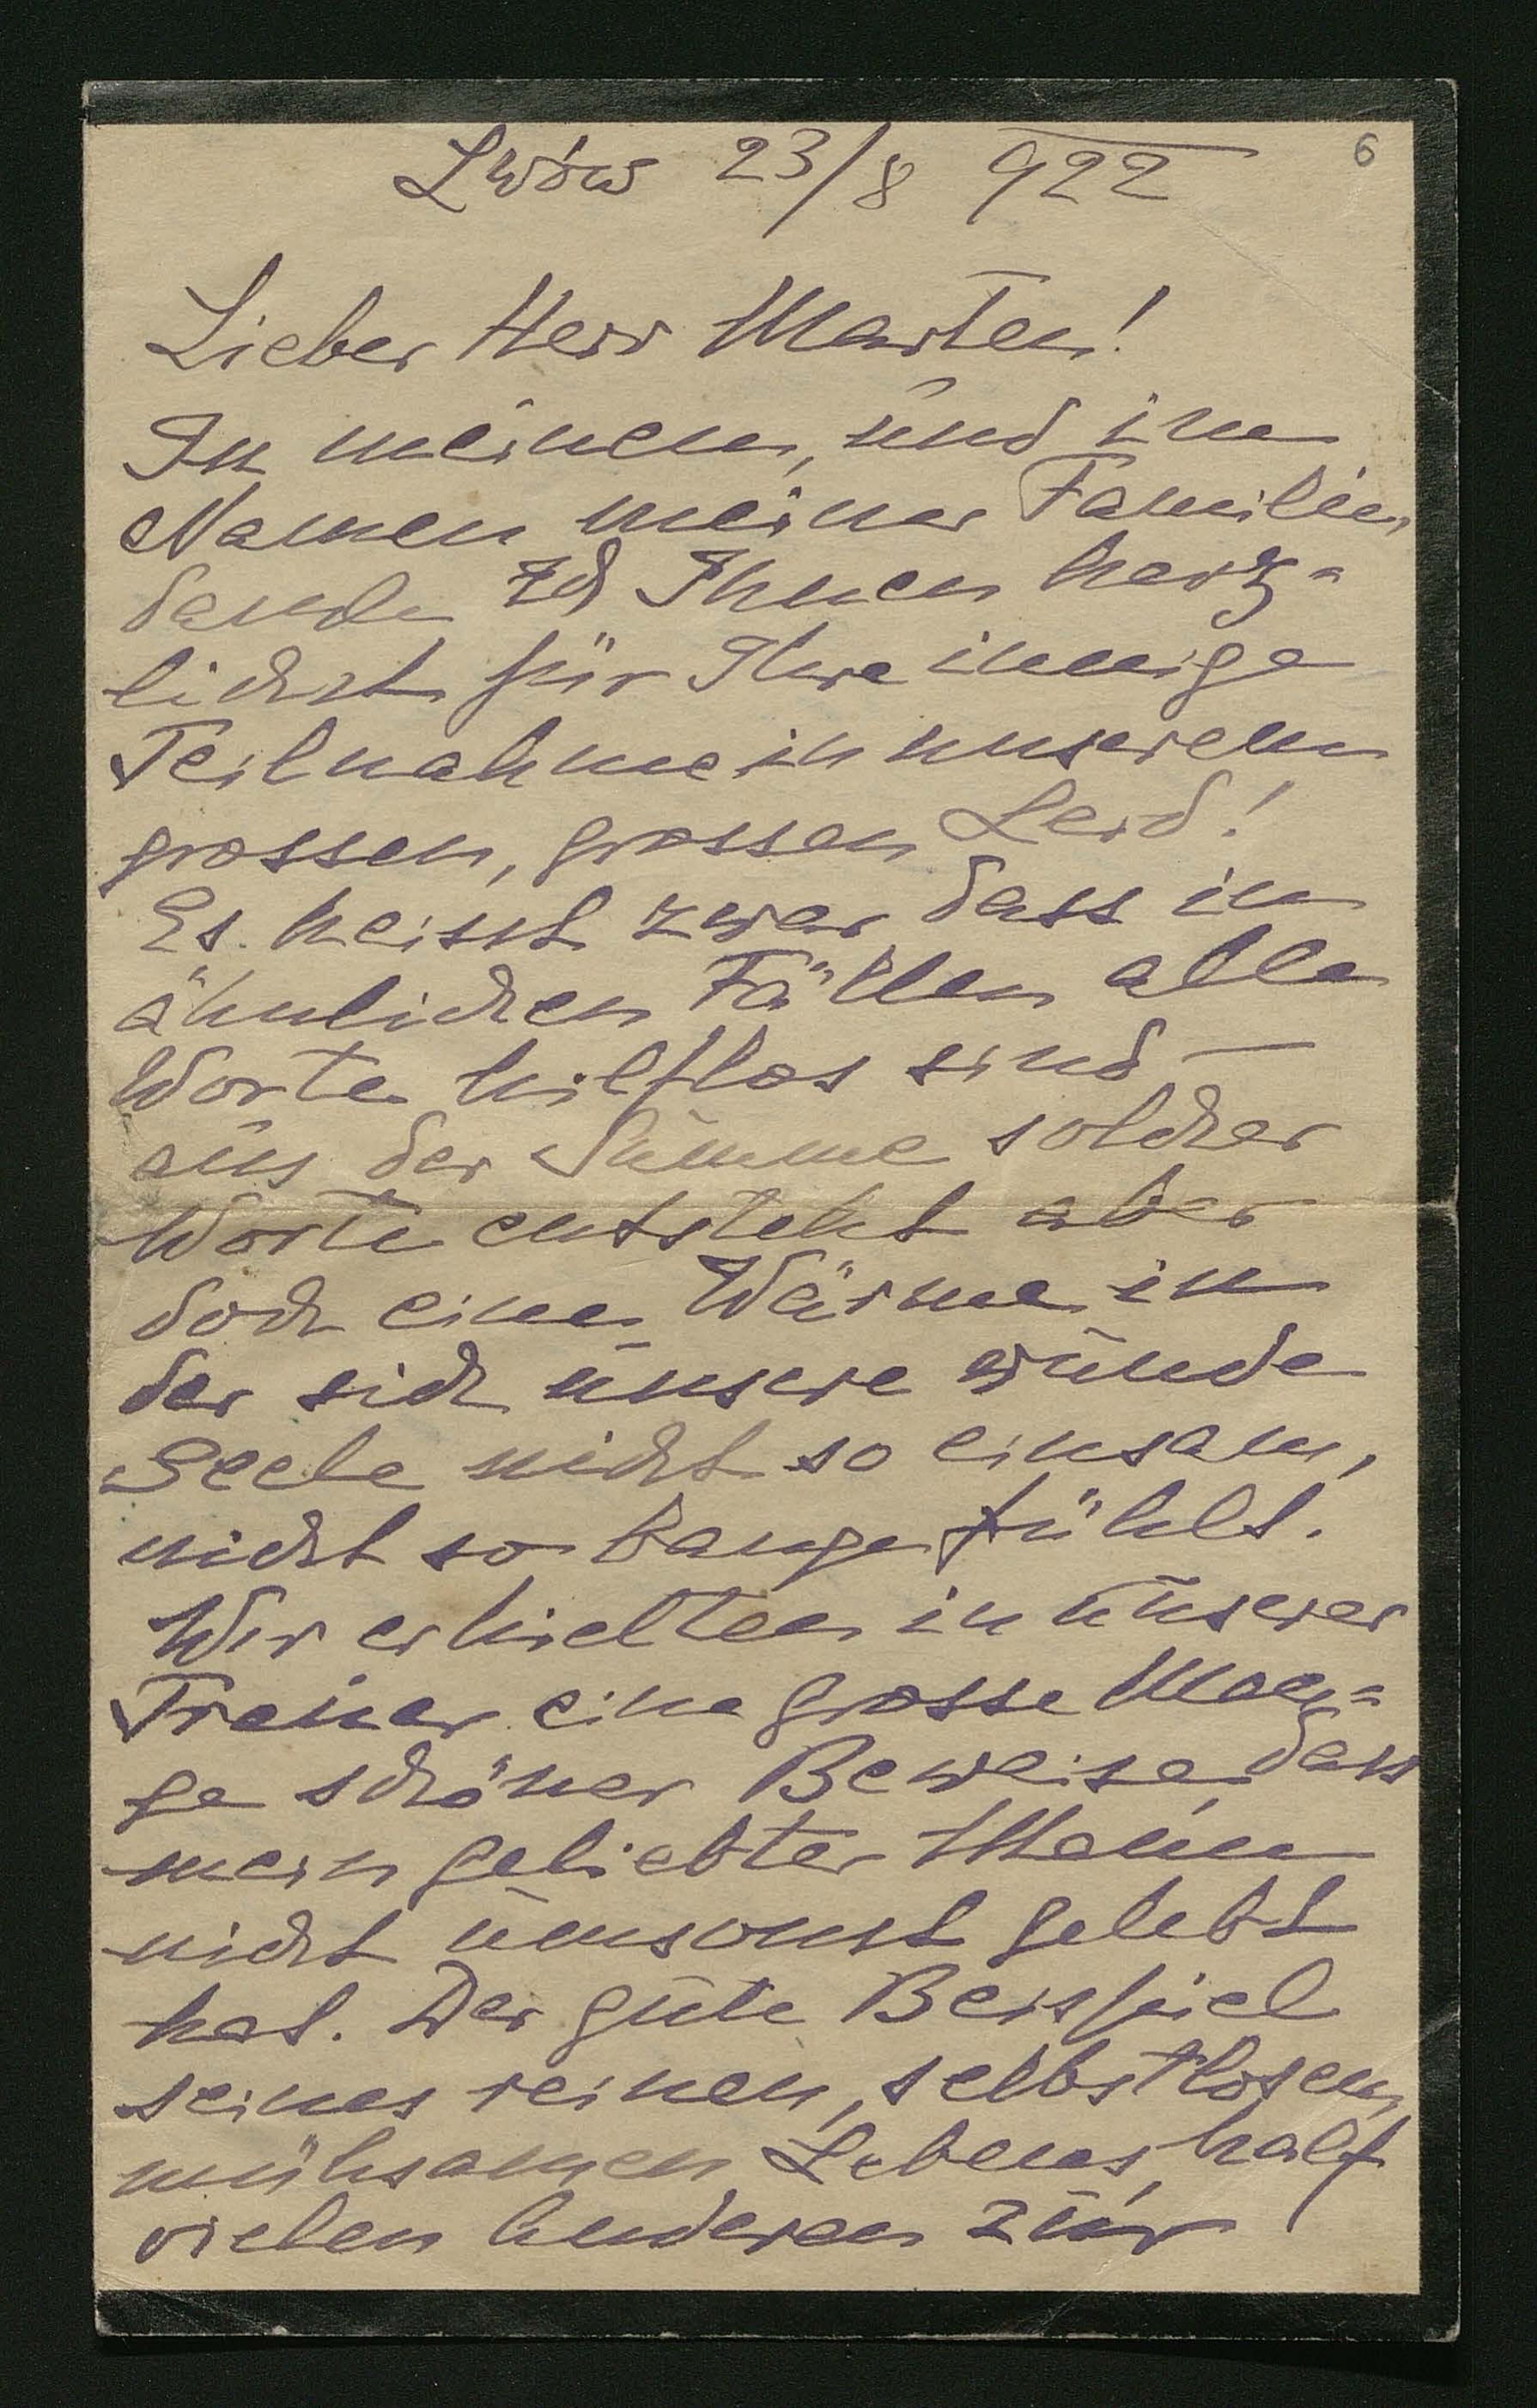 Lwów 23/8 922
6
Lieber Herr Marten!
In meinem, und im
Namen meiner Familie,
danke Ich Ihnen herz=
lichst für Ihre innige
Teilnahme in unserem
grossen, grossen Leid!
Es heisst zwar dass in
ähnlichen Fällen alle
Worte hilflos sind —
aus der Summe solcher
Worte entsteht aber
doch eine Wärme in
der sich unsere wunde
Seele nicht so einsam,
nicht so bange fühlt.
Wir erhielten in unserer
Trauer eine grosse Men=
ge schöner Beweise, dass
mein geliebter Mann
nicht umsonst gelebt
hat. Der gute Beispiel
seines reinen, selbstlosen,
mühsamen Lebens, half
vielen Anderen zur